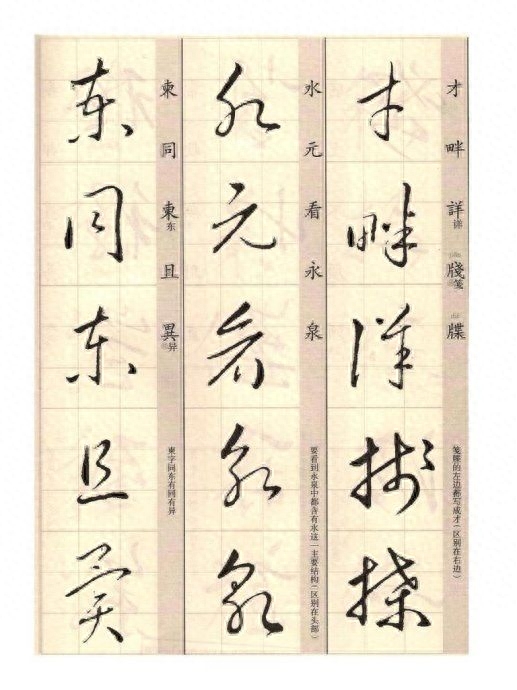 才 畔 詳详 牋笺 牒
笺牒的左边都写成才(区别在右边)
才畔詳牋牒
水 元 看 永 泉
要看到永泉中都含有水这一主要结构(区别在头部)
水元看永泉
柬 同 東东 且 異异
柬字同东有同有异
柬同東且異